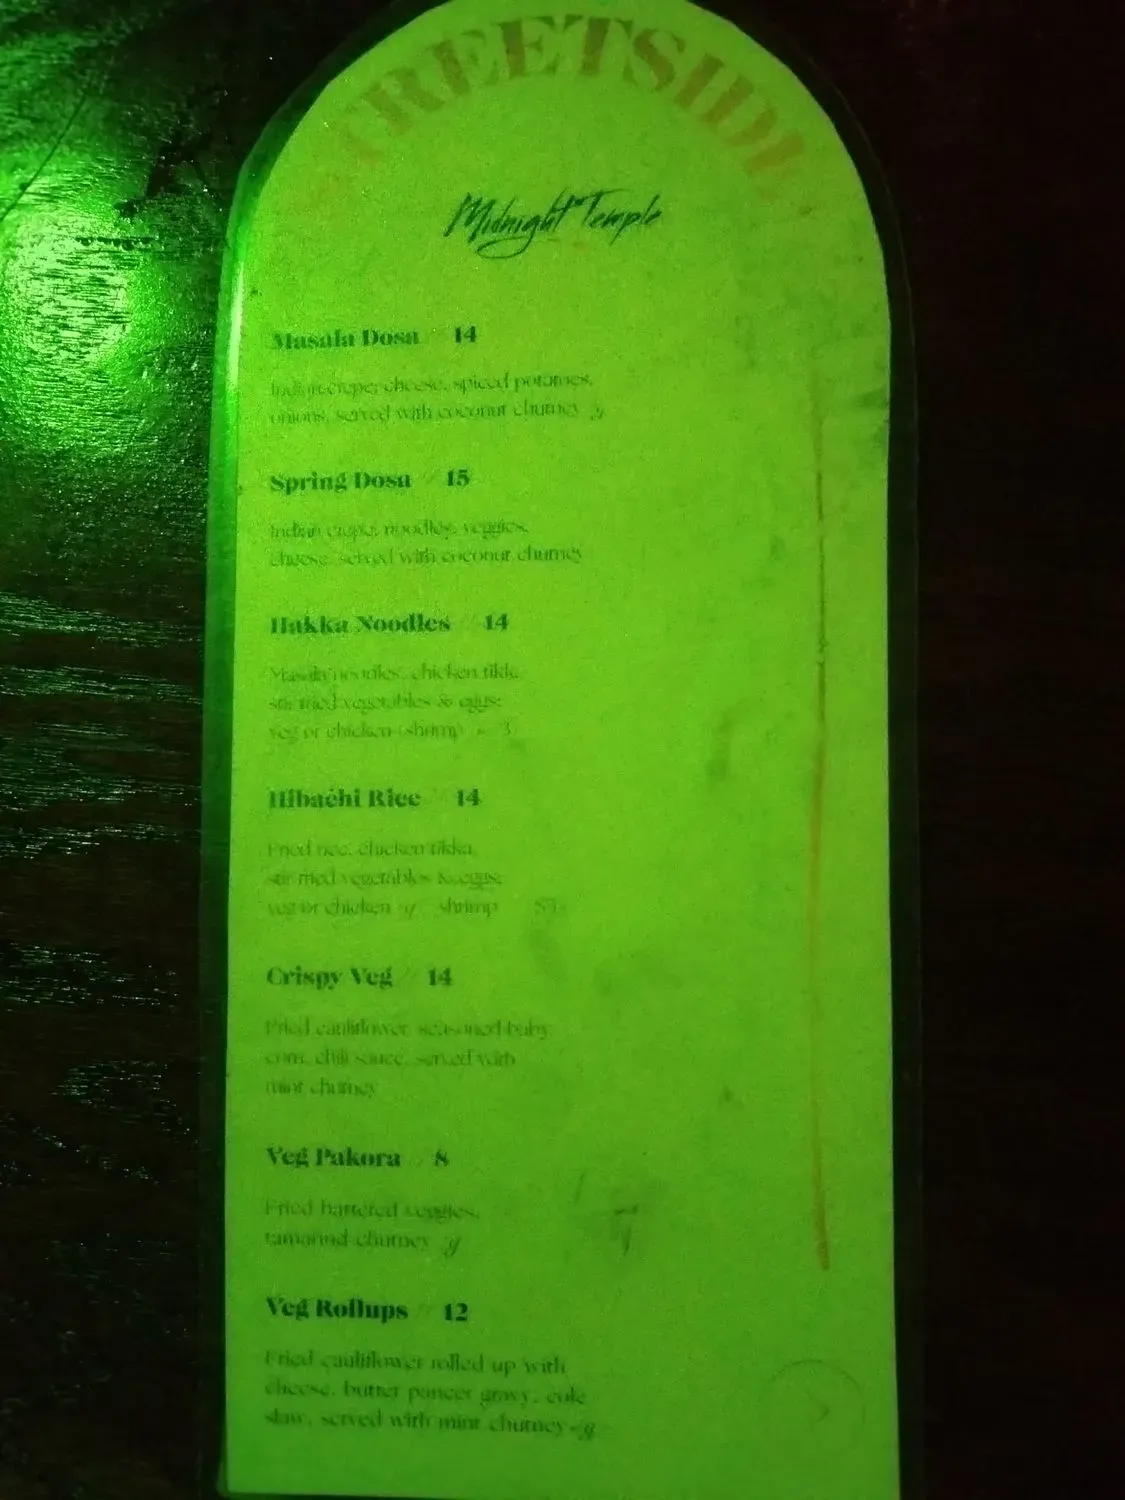 STREETSIDE
Midnight Temple
Masala Dosa / 14
Indian crepe, cheese, spiced potatoes,
onions, served with coconut chutney g
Spring Dosa / 15
Indian crepe, noodles, veggies,
cheese, served with coconut chutney
Hakka Noodles / 14
Masala noodles, chicken tikka,
stir fried vegetables & eggs;
veg or chicken (shrimp + 3)
Hibachi Rice / 14
Fried rice, chicken tikka,
stir fried vegetables & eggs;
veg or chicken g shrimp
Crispy Veg / 14
Fried cauliflower, seasoned baby
corn, chili sauce, served with
mint chutney
Veg Pakora / 8
Fried battered veggies,
tamarind chutney g
Veg Rollups / 12
Fried cauliflower rolled up with
cheese, butter paneer gravy, cole
slaw, served with mint chutney - g